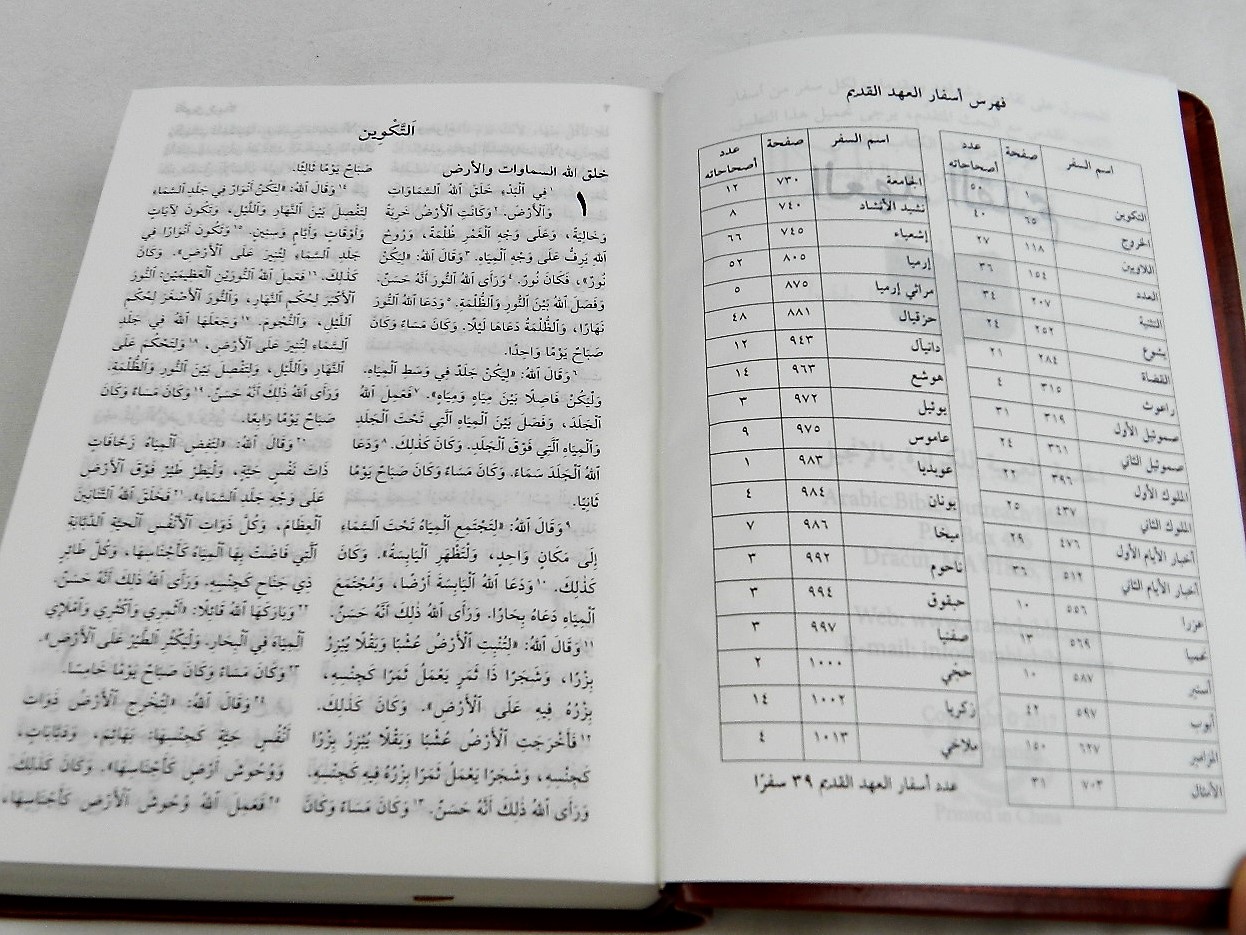 فهرس أسفار العهد القديم
اسم السفر صفحة عدد أصحاحاته
التكوين ١ ٥٠
الخروج ٦٥ ٤٠
اللاويين ١١٨ ٢٧
العدد ١٥٤ ٣٦
التثنية ٢٠٧ ٣٤
يشوع ٢٥٢ ٢٤
القضاة ٢٨٤ ٢١
راعوث ٣١٥ ٤
صموئيل الأول ٣١٩ ٣١
صموئيل الثاني ٣٦١ ٢٤
الملوك الأول ٣٩٦ ٢٢
الملوك الثاني ٤٣٧ ٢٥
أخبار الأيام الأول ٤٧٦ ٢٩
أخبار الأيام الثاني ٥١٢ ٣٦
عزرا ٥٥٦ ١٠
نحميا ٥٦٩ ١٣
أستير ٥٨٧ ١٠
أيوب ٥٩٧ ٤٢
المزامير ٦٢٧ ١٥٠
الأمثال ٧٠٣ ٣١
اسم السفر صفحة عدد أصحاحاته
الجامعة ٧٣٠ ١٢
نشيد الأنشاد ٧٤٠ ٨
إشعياء ٧٤٥ ٦٦
إرميا ٨٠٥ ٥٢
مراثي إرميا ٨٧٥ ٥
حزقيال ٨٨١ ٤٨
دانيآل ٩٤٣ ١٢
هوشع ٩٦٣ ١٤
يوئيل ٩٧٢ ٣
عاموس ٩٧٥ ٩
عوبديا ٩٨٣ ١
يونان ٩٨٤ ٤
ميخا ٩٨٦ ٧
ناحوم ٩٩٢ ٣
حبقوق ٩٩٤ ٣
صفنيا ٩٩٧ ٣
حجّي ١٠٠٠ ٢
زكريا ١٠٠٢ ١٤
ملاخي ١٠١٣ ٤
عدد أسفار العهد القديم ٣٩ سفرًا
اَلتَّكْوِين
خلق الله السماوات والأرض
١ ١فِي ٱلْبَدْءِ خَلَقَ ٱللهُ ٱلسَّمَاوَاتِ
وَٱلْأَرْضَ. ٢وَكَانَتِ ٱلْأَرْضُ خَرِبَةً
وَخَالِيَةً، وَعَلَى وَجْهِ ٱلْغَمْرِ ظُلْمَةٌ، وَرُوحُ
ٱللهِ يَرِفُّ عَلَى وَجْهِ ٱلْمِيَاهِ. ٣وَقَالَ ٱللهُ: «لِيَكُنْ
نُورٌ»، فَكَانَ نُورٌ. ٤وَرَأَى ٱللهُ ٱلنُّورَ أَنَّهُ حَسَنٌ.
وَفَصَلَ ٱللهُ بَيْنَ ٱلنُّورِ وَٱلظُّلْمَةِ. ٥وَدَعَا ٱللهُ ٱلنُّورَ
نَهَارًا، وَٱلظُّلْمَةُ دَعَاهَا لَيْلًا. وَكَانَ مَسَاءٌ وَكَانَ
صَبَاحٌ يَوْمًا وَاحِدًا.
٦وَقَالَ ٱللهُ: «لِيَكُنْ جَلَدٌ فِي وَسَطِ ٱلْمِيَاهِ.
وَلْيَكُنْ فَاصِلًا بَيْنَ مِيَاهٍ وَمِيَاهٍ». ٧فَعَمِلَ ٱللهُ
ٱلْجَلَدَ، وَفَصَلَ بَيْنَ ٱلْمِيَاهِ ٱلَّتِي تَحْتَ ٱلْجَلَدِ
وَٱلْمِيَاهِ ٱلَّتِي فَوْقَ ٱلْجَلَدِ. وَكَانَ كَذَلِكَ. ٨وَدَعَا
ٱللهُ ٱلْجَلَدَ سَمَاءً. وَكَانَ مَسَاءٌ وَكَانَ صَبَاحٌ يَوْمًا
ثَانِيًا.
٩وَقَالَ ٱللهُ: «لِتَجْتَمِعِ ٱلْمِيَاهُ تَحْتَ ٱلسَّمَاءِ
إِلَى مَكَانٍ وَاحِدٍ، وَلْتَظْهَرِ ٱلْيَابِسَةُ». وَكَانَ
كَذَلِكَ. ١٠وَدَعَا ٱللهُ ٱلْيَابِسَةَ أَرْضًا، وَمُجْتَمَعَ
ٱلْمِيَاهِ دَعَاهُ بِحَارًا. وَرَأَى ٱللهُ ذَلِكَ أَنَّهُ حَسَنٌ.
١١وَقَالَ ٱللهُ: «لِتُنْبِتِ ٱلْأَرْضُ عُشْبًا وَبَقْلًا يُبْزِرُ
بِزْرًا، وَشَجَرًا ذَا ثَمَرٍ يَعْمَلُ ثَمَرًا كَجِنْسِهِ،
بِزْرُهُ فِيهِ عَلَى ٱلْأَرْضِ». وَكَانَ كَذَلِكَ.
١٢فَأَخْرَجَتِ ٱلْأَرْضُ عُشْبًا وَبَقْلًا يُبْزِرُ بِزْرًا
كَجِنْسِهِ، وَشَجَرًا يَعْمَلُ ثَمَرًا بِزْرُهُ فِيهِ كَجِنْسِهِ.
وَرَأَى ٱللهُ ذَلِكَ أَنَّهُ حَسَنٌ. ١٣وَكَانَ مَسَاءٌ وَكَانَ
صَبَاحٌ يَوْمًا ثَالِثًا.
١٤وَقَالَ ٱللهُ: «لِتَكُنْ أَنْوَارٌ فِي جَلَدِ ٱلسَّمَاءِ
لِتَفْصِلَ بَيْنَ ٱلنَّهَارِ وَٱللَّيْلِ، وَتَكُونَ لِآيَاتٍ
وَأَوْقَاتٍ وَأَيَّامٍ وَسِنِينٍ. ١٥وَتَكُونَ أَنْوَارًا فِي
جَلَدِ ٱلسَّمَاءِ لِتُنِيرَ عَلَى ٱلْأَرْضِ». وَكَانَ
كَذَلِكَ. ١٦فَعَمِلَ ٱللهُ ٱلنُّورَيْنِ ٱلْعَظِيمَيْنِ: ٱلنُّورَ
ٱلْأَكْبَرَ لِحُكْمِ ٱلنَّهَارِ، وَٱلنُّورَ ٱلْأَصْغَرَ لِحُكْمِ
ٱللَّيْلِ، وَٱلنُّجُومَ. ١٧وَجَعَلَهَا ٱللهُ فِي جَلَدِ
ٱلسَّمَاءِ لِتُنِيرَ عَلَى ٱلْأَرْضِ، ١٨وَلِتَحْكُمَ عَلَى
ٱلنَّهَارِ وَٱللَّيْلِ، وَلِتَفْصِلَ بَيْنَ ٱلنُّورِ وَٱلظُّلْمَةِ.
وَرَأَى ٱللهُ ذَلِكَ أَنَّهُ حَسَنٌ. ١٩وَكَانَ مَسَاءٌ وَكَانَ
صَبَاحٌ يَوْمًا رَابِعًا.
٢٠وَقَالَ ٱللهُ: «لِتَفِضِ ٱلْمِيَاهُ زَحَّافَاتٍ
ذَاتَ نَفْسٍ حَيَّةٍ، وَلْيَطِرْ طَيْرٌ فَوْقَ ٱلْأَرْضِ
عَلَى وَجْهِ جَلَدِ ٱلسَّمَاءِ». ٢١فَخَلَقَ ٱللهُ ٱلتَّنَانِينَ
ٱلْعِظَامَ، وَكُلَّ ذَوَاتِ ٱلْأَنْفُسِ ٱلْحَيَّةِ ٱلدَّبَّابَةِ
ٱلَّتِي فَاضَتْ بِهَا ٱلْمِيَاهُ كَأَجْنَاسِهَا، وَكُلَّ طَائِرٍ
ذِي جَنَاحٍ كَجِنْسِهِ. وَرَأَى ٱللهُ ذَلِكَ أَنَّهُ حَسَنٌ.
٢٢وَبَارَكَهَا ٱللهُ قَائِلًا: «أَثْمِرِي وَٱكْثُرِي وَٱمْلَإِي
ٱلْمِيَاهَ فِي ٱلْبِحَارِ. وَلْيَكْثُرِ ٱلطَّيْرُ عَلَى ٱلْأَرْضِ».
٢٣وَكَانَ مَسَاءٌ وَكَانَ صَبَاحٌ يَوْمًا خَامِسًا.
٢٤وَقَالَ ٱللهُ: «لِتُخْرِجِ ٱلْأَرْضُ ذَوَاتِ
أَنْفُسٍ حَيَّةٍ كَجِنْسِهَا: بَهَائِمَ، وَدَبَّابَاتٍ،
وَوُحُوشَ أَرْضٍ كَأَجْنَاسِهَا». وَكَانَ كَذَلِكَ.
٢٥فَعَمِلَ ٱللهُ وُحُوشَ ٱلْأَرْضِ كَأَجْنَاسِهَا،